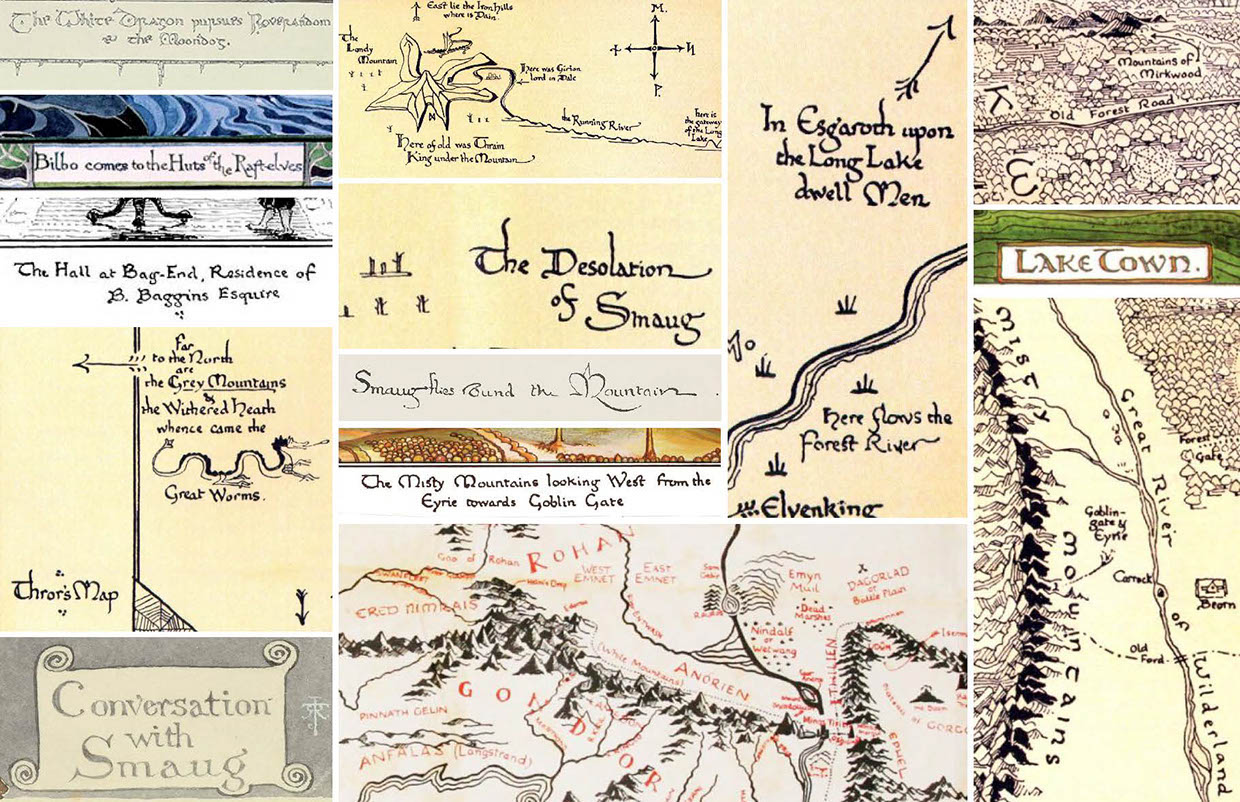 The White Dragon pursues Roverandom
& the Moondog.
Bilbo comes to the Huts of the Raft-elves
The Hall at Bag-End, Residence of
B. Baggins Esquire
Far
to the North
are
the Grey Mountains
&
the Withered Heath
whence came the
Great Worms.
Thror's Map
Conversation
with
Smaug
East lie the Iron Hills
where is Dain.
The
Lonely
Mountain
Here was Girion
lord in Dale
the Running River
here is
the gateway
of the Long
Lake
Here of old was Thrain
King under the Mountain
The Desolation
of
Smaug
Smaug flies round the Mountain.
The Misty Mountains looking West from the
Eyrie towards Goblin Gate
In Esgaroth upon
the Long Lake
dwell Men
here flows the
Forest River
Elvenking
Gap of Rohan
ROHAN
WEST
EMNET
EAST
EMNET
Emyn
Muil
DAGORLAD
or
Battle Plain
Dead
Marshes
Nindalf
or
Wetwang
ERED NIMRAIS
(White Mountains)
ANORIEN
ITHILIEN
UDÛN
GONDOR
PINNATH GELIN
ANFALAS (Langstrand)
Mountains of
Mirkwood
Old Forest Road
LAKE TOWN.
Misty Mountains
Great River of Wilderland
Forest
Gate
Goblin-
gate &
Eyrie
Carrock
Beorn
Old
Ford